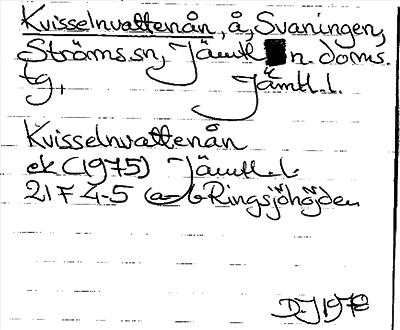 Kvisselnvattenån, å, Svaningen,
Ströms sn, Jämtl n. doms.
tg, Jämtl. l.
Kvisselnvattenån
ek (1975) Jämtl. l.
21 F 4-5 a-b Ringsjöhöjden
D-J 1978